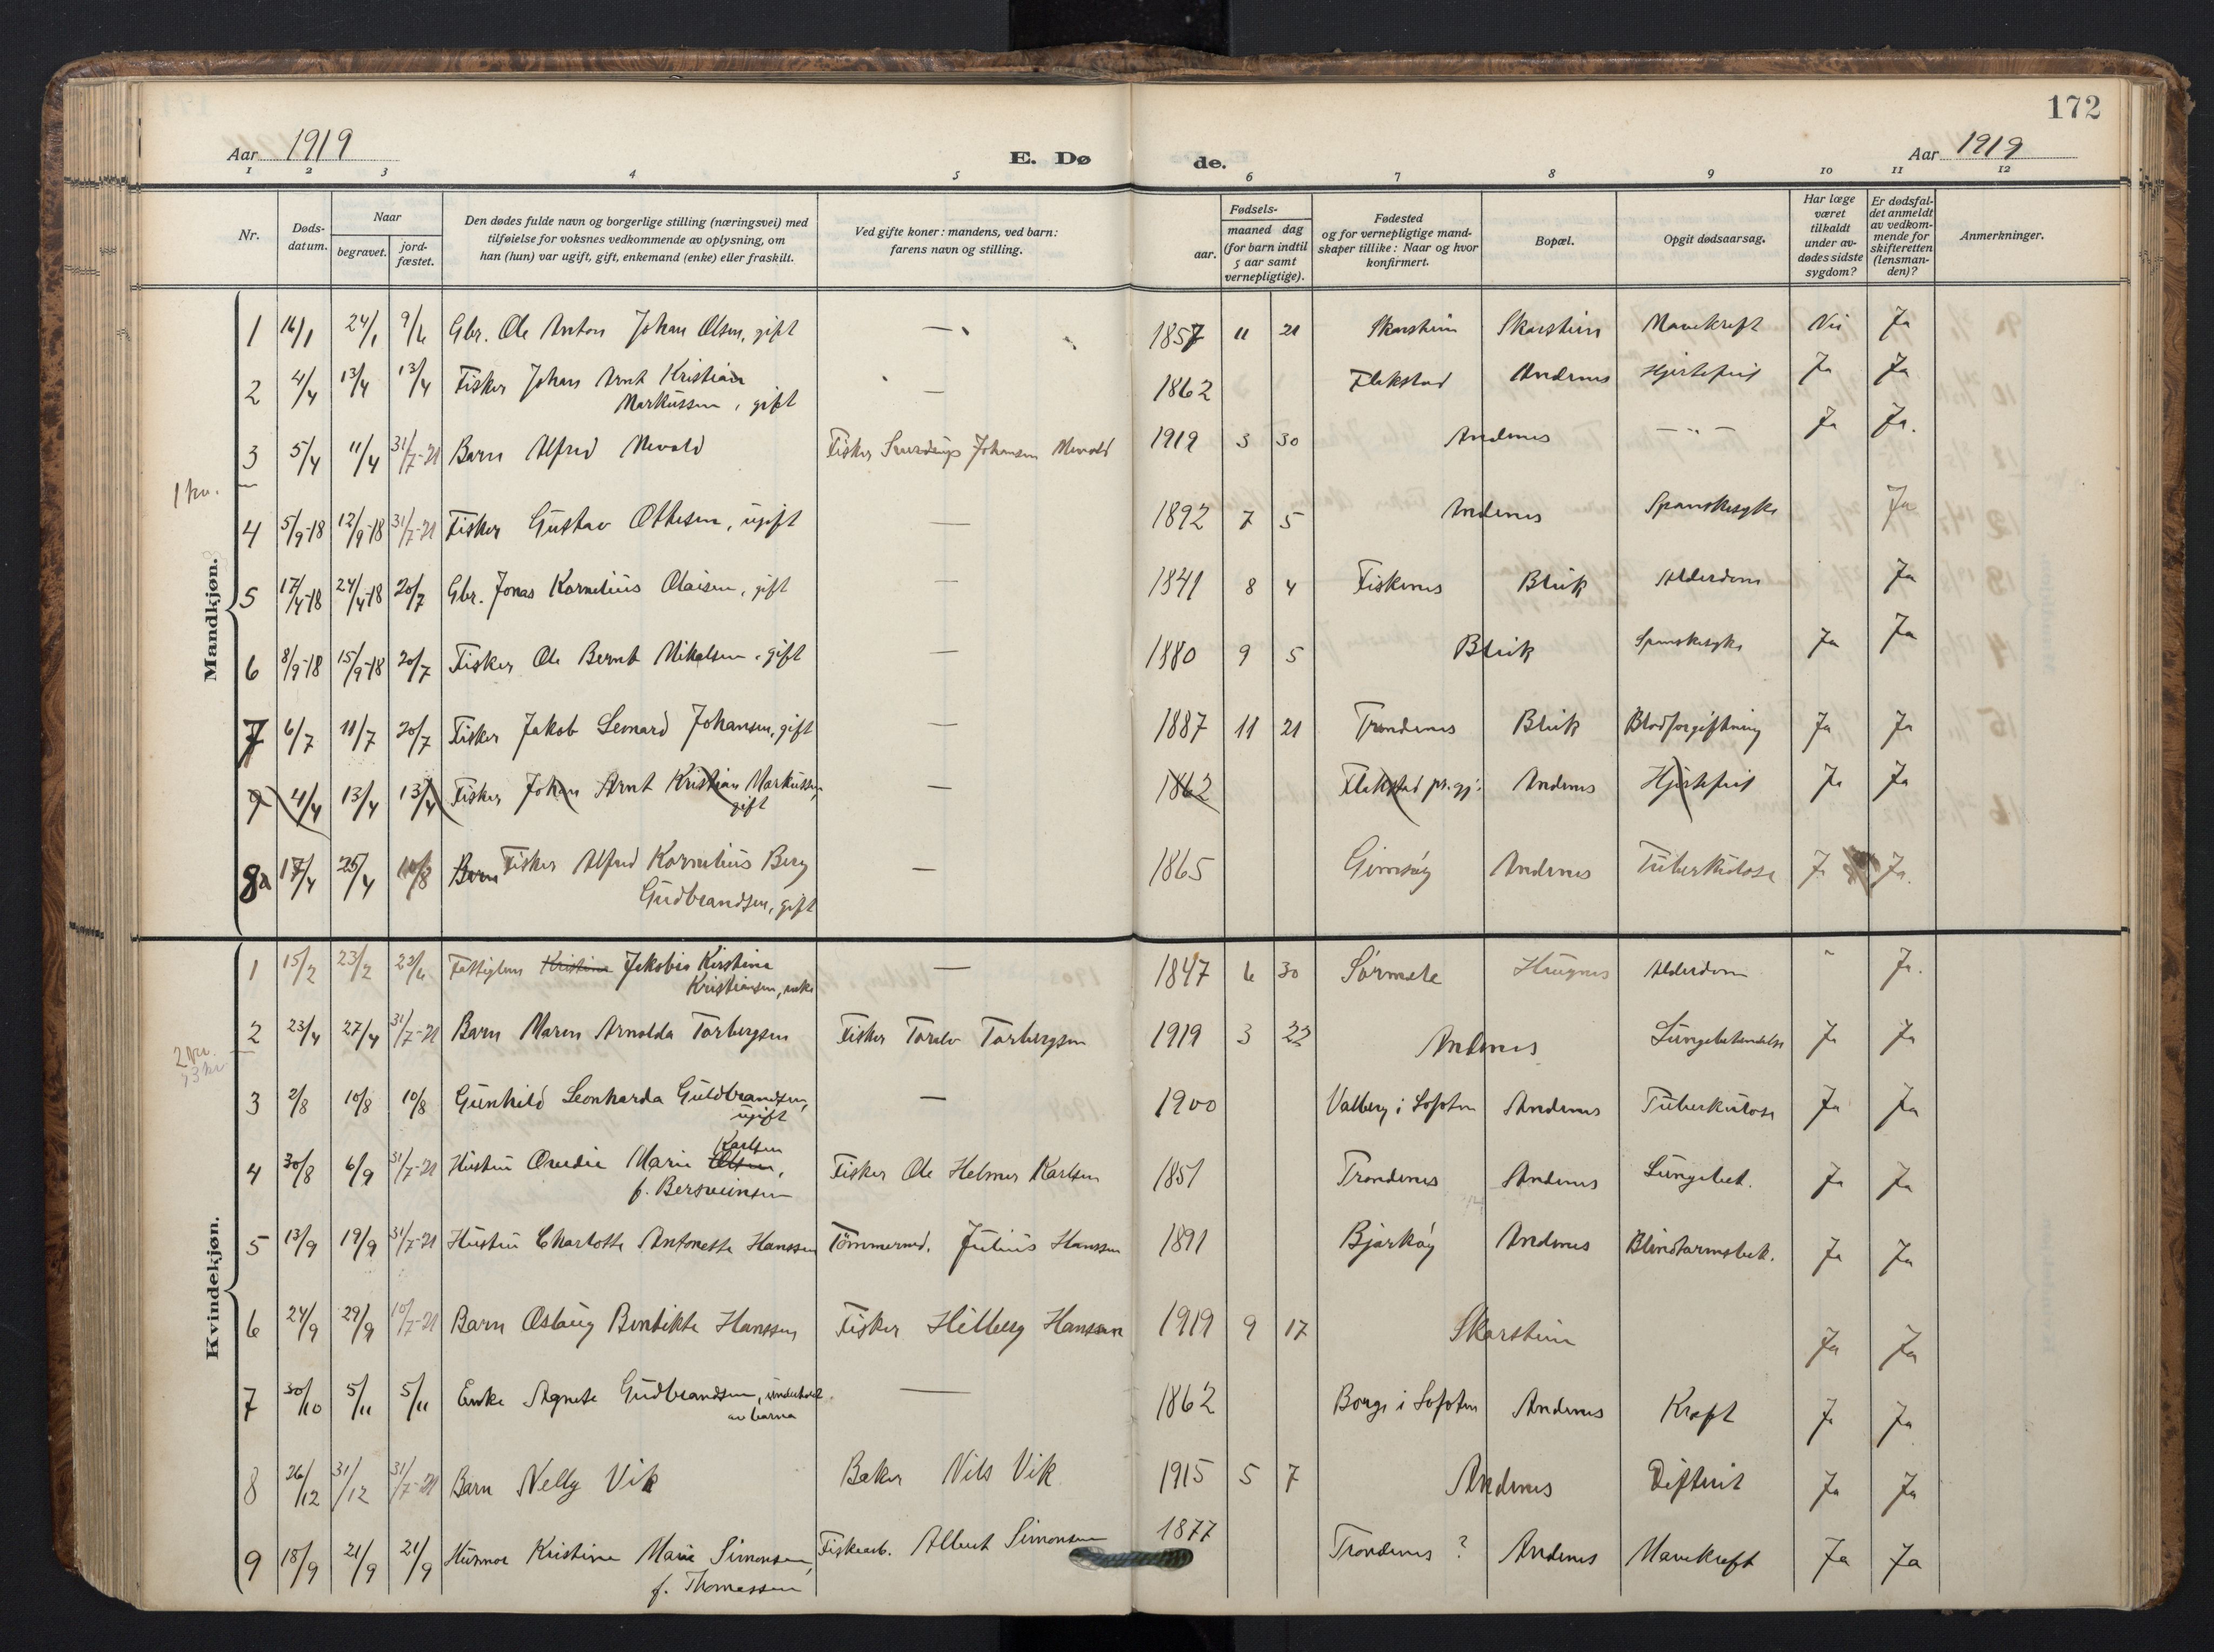 172
Aar 1919
E. Dø
de.
Aar 1919
1 2 3 4 5 6 7 8 9 10 11 12
Nr.
Døds-datum.
Naar
begravet.
jord-fæstet.
Den dødes fulde navn og borgerlige stilling (næringsvei) med
tilføielse for voksnes vedkommende av oplysning, om
han (hun) var ugift, gift, enkemand (enke) eller fraskilt.
Ved gifte koner: mandens, ved barn:
farens navn og stilling.
Fødsels-
aar.
maaned dag
(for barn indtil
5 aar samt
vernepligtige).
Fødested
og for vernepligtige mand-
skaper tillike: Naar og hvor
konfirmert.
Bopæl.
Opgit dødsaarsag.
Har læge
været
tilkaldt
under av-
dødes sidste
sygdom?
Er dødsfal-
det anmeldt
av vedkom-
mende for
skifteretten
(lensman-
den)?
Anmerkninger.
Mandkjøn.
1 16/1 24/1 9/6 Gbr. Ole Anton Johan Olsen, gift — 1857 11 21 Skarstein Skarstein Mavekreft Nei Ja
2 4/4 13/4 13/4 Fisker Johan Arnt Kristian
Markussen, gift — 1862 Flakstad Andenes Hjertefeil Ja Ja
3 5/4 11/4 31/7-21 Barn Alfred Nevold Fisker Johansen Nevold 1919 3 30 Andenes — " — Ja Ja.
1 kv.
4 5/9-18 12/9-18 31/7-21 Fisker Gustav Othesen, ugift — 1892 7 5 Andenes Spanskesyke Ja
5 17/4-18 24/4-18 20/7 Gbr. Jonas Kornelius Olaisen, gift — 1841 8 4 Fiskenes Bleik Alderdom Ja
6 8/9-18 15/9-18 20/7 Fisker Ole Bernt Mikalsen, gift — 1880 9 5 Bleik Spanskesyke Ja Ja
7 6/7 11/7 20/7 Fisker Jakob Leonard Johansen, gift — 1887 11 21 Trondenes Bleik Blodforgiftning Ja Ja
9 4/4 13/4 13/4 Fisker Johan Arnt Kristian Markussen,
gift — 1862 Flakstad pr.gj. Andenes Hjertefeil Ja Ja
8a 17/4 25/4 10/8 Barn Fisker Alfred Kornelius Berg
Gudbrandsen, gift — 1865 Gimsøy Andenes Tuberkulose Ja Ja.
Kvindekjøn.
1 15/2 23/2 22/6 Fattiglem Kristine Jakobia Kirstine
Kristiansen, enke — 1847 6 30 Sørmele Haugnes Alderdom - Ja.
2 23/4 27/4 31/7-21 Barn Maren Arnolda Torbergsen Fisker Torlev Torbergsen 1919 3 22 Andenes Lungebetendelse Ja Ja
3 2/8 10/8 10/8 Gunhild Leonharda Guldbrandsen,
ugift — 1900 Valberg i Lofoten Andenes Tuberkulose Ja Ja
4 30/8 6/9 31/7-21 Hustru Marie Olsen, Karlsen
f. Bersveinsen Fisker Ole Helmer Karlsen 1851 Trondenes Andenes Lungebet. Ja Ja
5 13/9 19/9 31/7-21 Hustru Charlotte Antonette Hanssen Tömmermd. Julius Hanssen 1891 Bjarkøy Andenes Blindtarmsbet. Ja Ja
6 24/9 29/9 10/7-21 Barn Oslaug Benedikte Hanssen Fisker Hilberg Hanssen 1919 9 17 Skarstein Ja Ja
7 30/10 5/11 5/11 Enke Agnete Gudbrandsen, underholdt
av barna — 1862 Borge i Lofoten Andenes Kreft Ja Ja
8 26/12 31/12 31/7-21 Barn Nelly Vik Baker Nils Vik 1915 5 7 Andenes Difterit Ja Ja
9 18/9 21/9 21/9 Husmor Kristine Marie Simonsen,
f. Thomassen Fiskearb. Albert Simonsen 1877 Trondenes ? Andenes Mavekreft Ja Ja